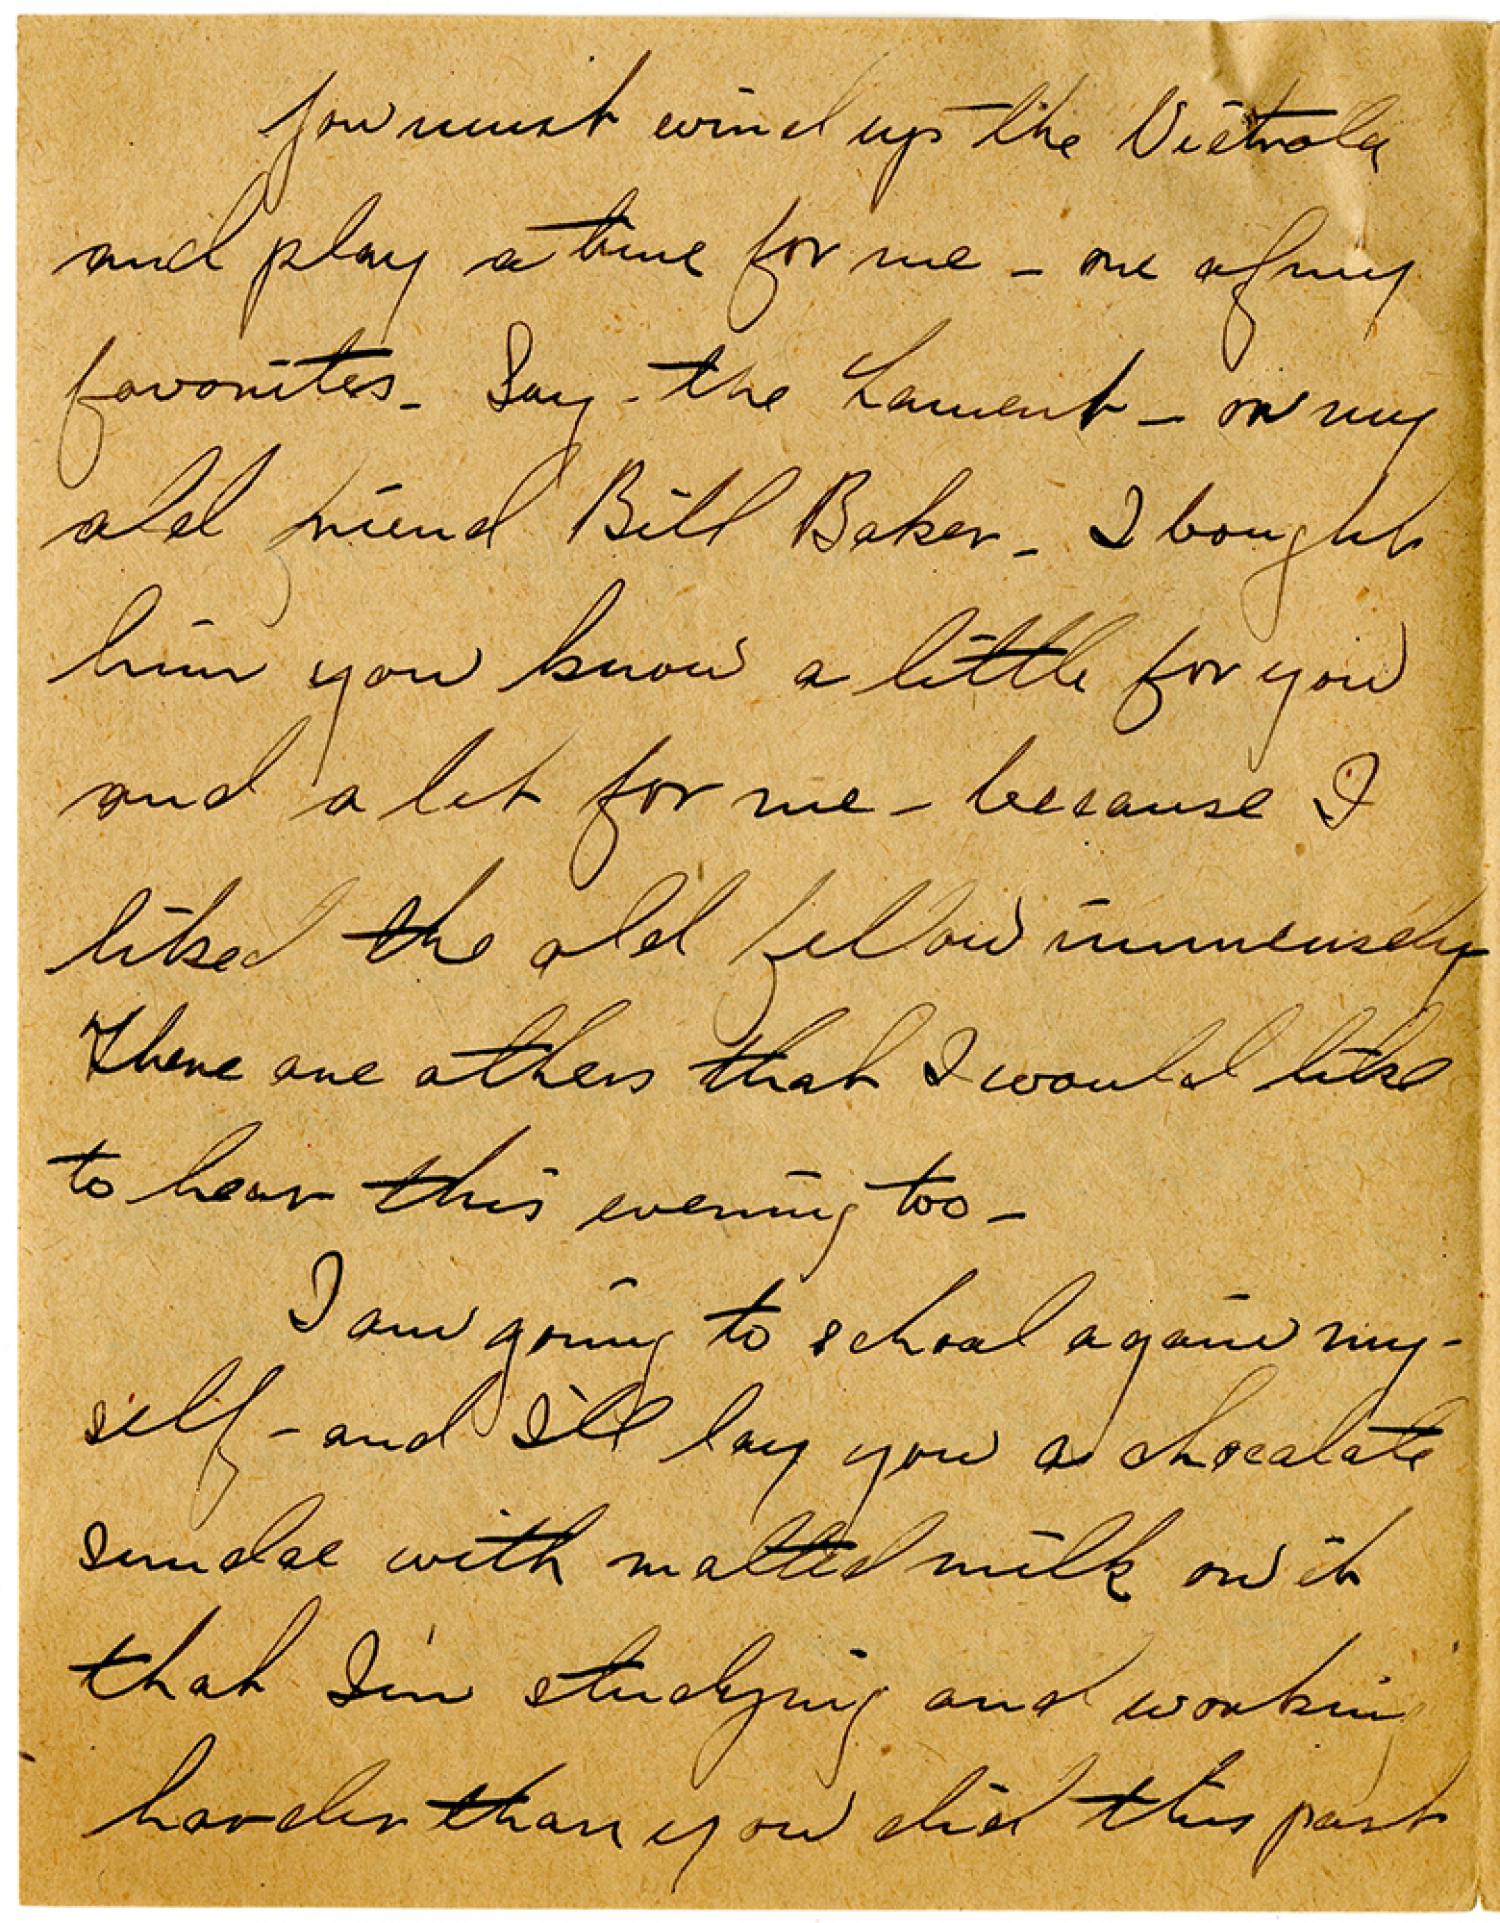 You must wind up the Victrola
and play a tune for me – one of my
favorites – Say – the Lament – or my
old friend Bill Baker – I bought
him you know a little for you
and a lot for me – because I
liked the old fellow immensely
There are others that I would like
to hear this evening too –
I am going to school again my-
self – and I'll lay you a chocolate
sundae with malted milk on it
that I'm studying and working
harder than you did this past